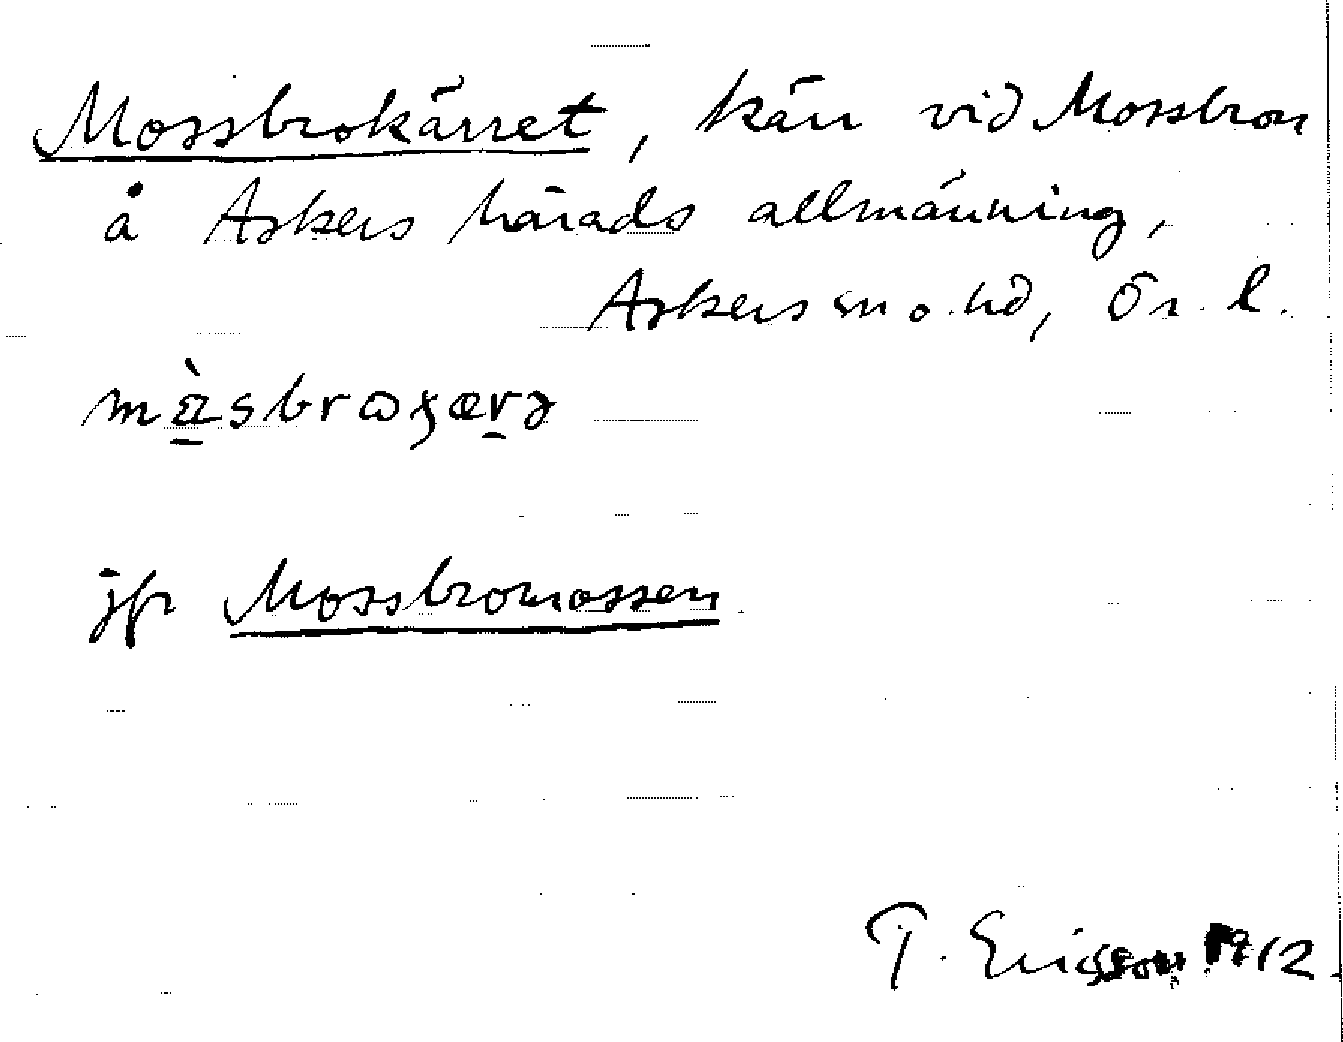 Mossbrokärret, kärr vid Mossbron
å Askers härads allmänning,
Askers sn o. hd, Ör. l.
jfr Mossbromossen
T. Ericsson 1912